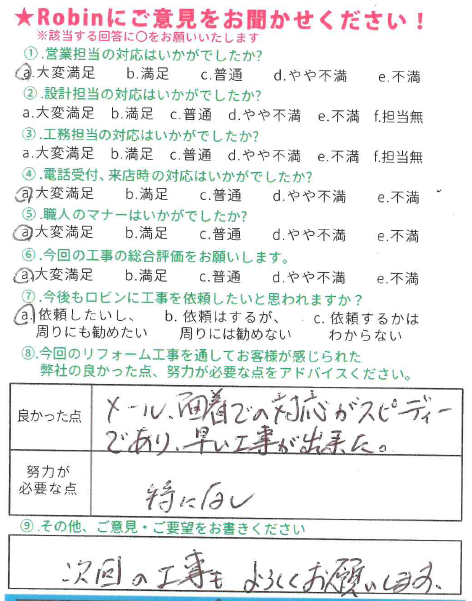 ★Robinにご意見をお聞かせください！
※該当する回答に〇をお願いいたします
①.営業担当の対応はいかがでしたか?
a.大変満足 b.満足 c.普通 d.やや不満 e.不満
②.設計担当の対応はいかがでしたか?
a.大変満足 b.満足 c.普通 d.やや不満 e.不満 f.担当無
③.工務担当の対応はいかがでしたか?
a.大変満足 b.満足 c.普通 d.やや不満 e.不満 f.担当無
④.電話受付、来店時の対応はいかがでしたか?
a.大変満足 b.満足 c.普通 d.やや不満 e.不満
⑤.職人のマナーはいかがでしたか?
a.大変満足 b.満足 c.普通 d.やや不満 e.不満
⑥.今回の工事の総合評価をお願いします。
a.大変満足 b.満足 c.普通 d.やや不満 e.不満
⑦.今後もロビンに工事を依頼したいと思われますか？
a.依頼したいし、 b. 依頼はするが、 c. 依頼するかは
周りにも勧めたい 周りには勧めない わからない
⑧.今回のリフォーム工事を通してお客様が感じられた
弊社の良かった点、努力が必要な点をアドバイスください。
良かった点
メール、面着での対応がスピーディー
であり、早い工事が出来た。
努力が
必要な点
特になし
⑨.その他、ご意見・ご要望をお書きください
次回の工事も よろしくお願いします。